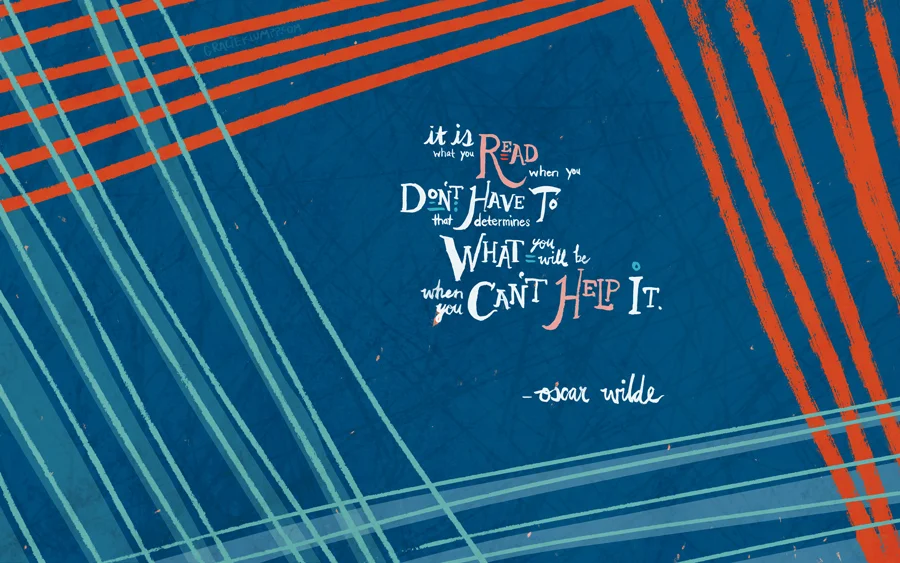 it is
what you READ
when you
DON'T HAVE TO
that determines
WHAT you will be
when you CAN'T HELP IT.
-oscar wilde